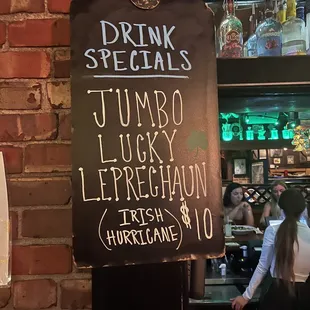 DRINK
SPECIALS
JUMBO
LUCKY
LEPRECHAUN
(IRISH
HURRICANE) $10